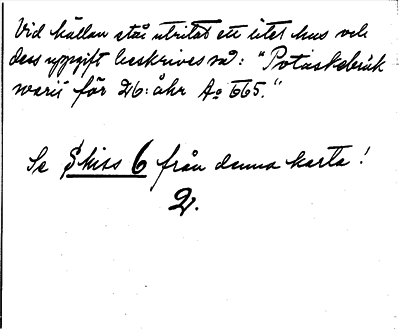 Vid källan står utritat ett litet hus och
dess uppgift beskrives så: "Potaskebruk
warit för 26: åhr Ao 665."
Se Skiss 6 från denna karta!
2.